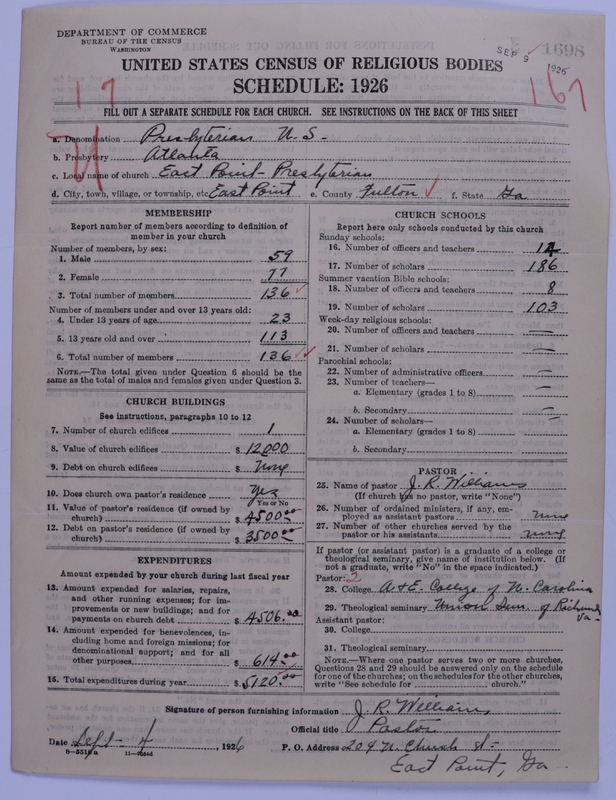 DEPARTMENT OF COMMERCE
BUREAU OF THE CENSUS
WASHINGTON
SEP 9 1926
1698
UNITED STATES CENSUS OF RELIGIOUS BODIES
SCHEDULE: 1926
17
167
FILL OUT A SEPARATE SCHEDULE FOR EACH CHURCH. SEE INSTRUCTIONS ON THE BACK OF THIS SHEET
a. Denomination Presbyterian U. S.
b. Presbytery Atlanta
c. Local name of church East Point Presbyterian
d. City, town, village, or township, etc. East Point e. County Fulton f. State Ga
MEMBERSHIP
Report number of members according to definition of member in your church
Number of members, by sex:
1. Male 59
2. Female 77
3. Total number of members 136
Number of members under and over 13 years old:
4. Under 13 years of age 23
5. 13 years old and over 113
6. Total number of members 136
NOTE.—The total given under Question 6 should be the same as the total of males and females given under Question 3.
CHURCH BUILDINGS
See instructions, paragraphs 10 to 12
7. Number of church edifices 1
8. Value of church edifices $ 12000
9. Debt on church edifices $ None
10. Does church own pastor's residence Yes
Yes or No
11. Value of pastor's residence (if owned by church) $ 4500.00
12. Debt on pastor's residence (if owned by church) $ 3500.00
EXPENDITURES
Amount expended by your church during last fiscal year
13. Amount expended for salaries, repairs, and other running expenses; for improvements or new buildings; and for payments on church debt $ 4506.00
14. Amount expended for benevolences, including home and foreign missions; for denominational support; and for all other purposes $ 614.00
15. Total expenditures during year $ 5120.00
CHURCH SCHOOLS
Report here only schools conducted by this church
Sunday schools:
16. Number of officers and teachers 14
17. Number of scholars 186
Summer vacation Bible schools:
18. Number of officers and teachers 8
19. Number of scholars 103
Week-day religious schools:
20. Number of officers and teachers —
21. Number of scholars —
Parochial schools:
22. Number of administrative officers —
23. Number of teachers—
a. Elementary (grades 1 to 8) —
b. Secondary —
24. Number of scholars—
a. Elementary (grades 1 to 8)
b. Secondary
PASTOR
25. Name of pastor J. R. Williams
(If church has no pastor, write "None")
26. Number of ordained ministers, if any, employed as assistant pastors none
27. Number of other churches served by the pastor or his assistants none
If pastor (or assistant pastor) is a graduate of a college or theological seminary, give name of institution below. (If not a graduate, write "No" in the space indicated.)
Pastor: 2
28. College A & E. College of N. Carolina
29. Theological seminary Union Sem. of Richmond Va.
Assistant pastor:
30. College
31. Theological seminary
NOTE.—Where one pastor serves two or more churches, Questions 28 and 29 should be answered only on the schedule for one of the churches; on the schedules for the other churches, write "See schedule for church."
Signature of person furnishing information J. R. Williams
Official title Pastor
Date Sept 4 1926 P. O. Address 204 N. Church St.
East Point, Ga